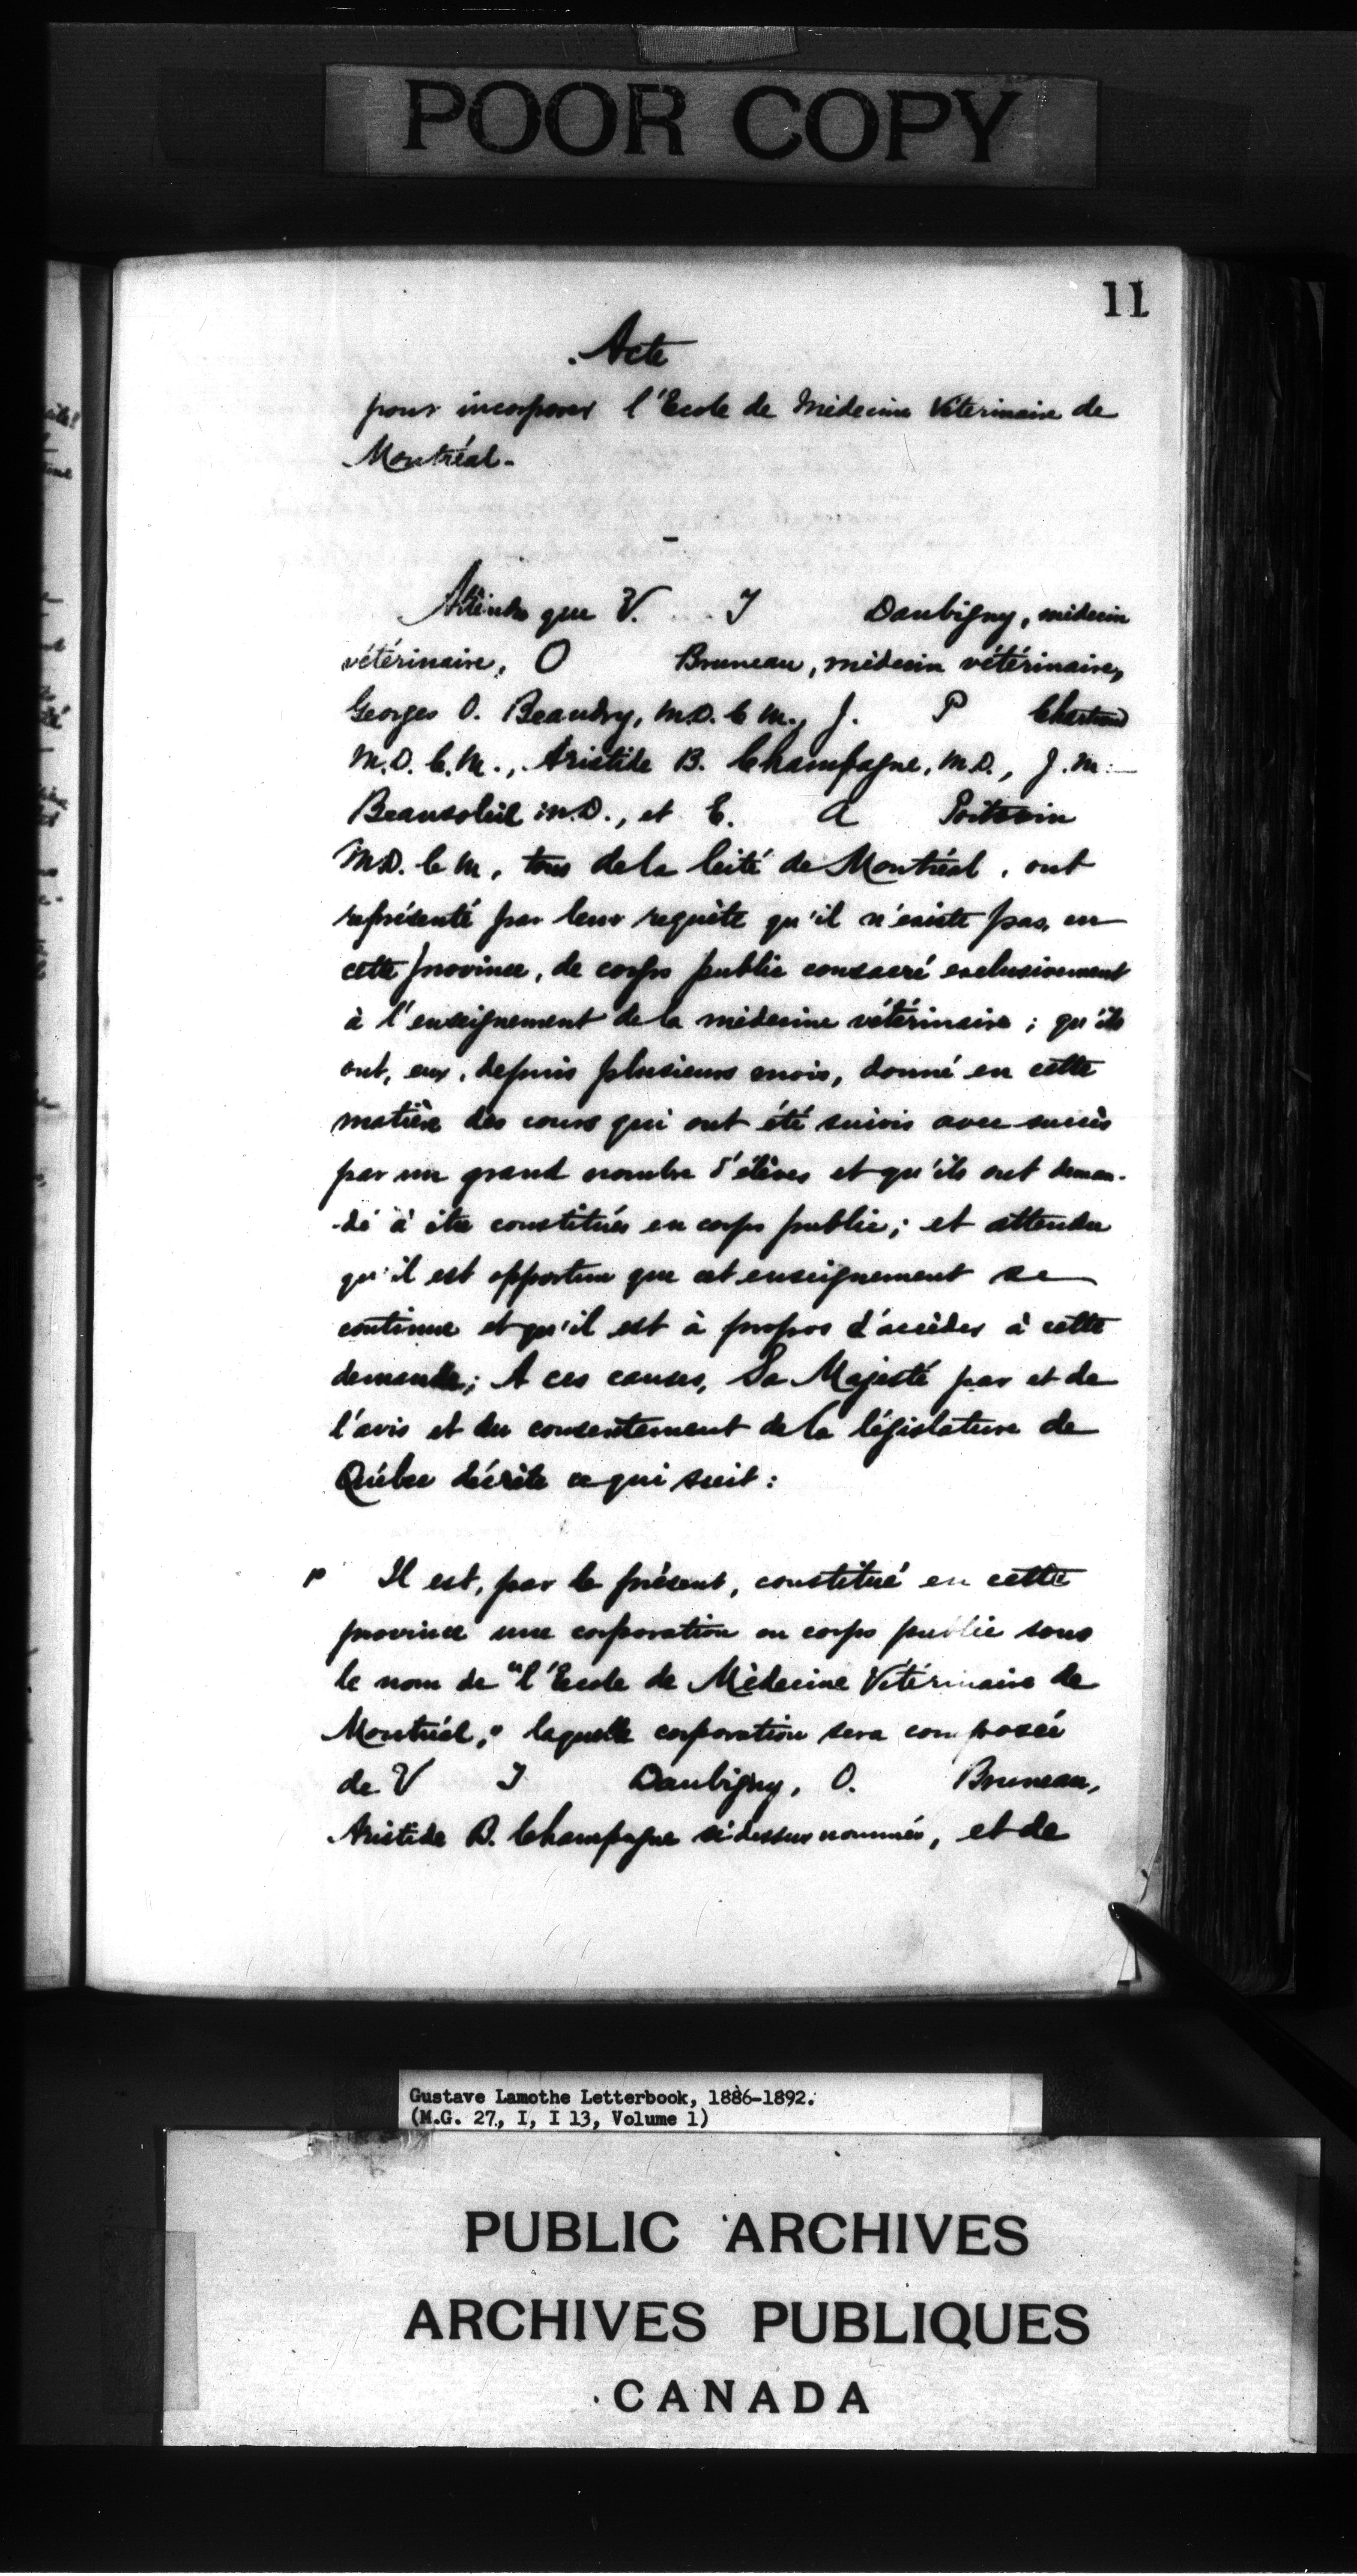 POOR COPY
11
Acte
pour incorporer l'Ecole de Médecine Vétérinaire de
Montréal.
-
Attendu que V. T Daubigny, médecin
vétérinaire, O Bruneau, médecin vétérinaire,
Georges O. Beaudry, M.D. C M., J. P Chartrand
M.D. C.M., Aristide B. Champagne, M.D., J. M.
Beausoleil M.D., et E. A Poitevin
M.D. C M, tous de la Cité de Montréal, ont
représenté par leur requête qu'il n'existe pas, en
cette province, de corps public consacré exclusivement
à l'enseignement de la médecine vétérinaire; qu'ils
ont, eux, depuis plusieurs mois, donné en cette
matière des cours qui ont été suivis avec succès
par un grand nombre d'élèves et qu'ils ont deman-
-dé à être constitués en corps public; et attendu
qu'il est opportun que cet enseignement se
continue et qu'il est à propos d'accéder à cette
demande; A ces causes, Sa Majesté par et de
l'avis et du consentement de la législature de
Québec décrète ce qui suit:
Il est, par le présent, constitué en cette
province une corporation ou corps public sous
le nom de "l'Ecole de Médecine Vétérinaire de
Montréal," laquelle corporation sera composée
de V T Daubigny, O. Bruneau,
Aristide B. Champagne ci-dessus nommés, et de
Gustave Lamothe Letterbook, 1886-1892.
(M.G. 27, I, I 13, Volume 1)
PUBLIC ARCHIVES
ARCHIVES PUBLIQUES
CANADA